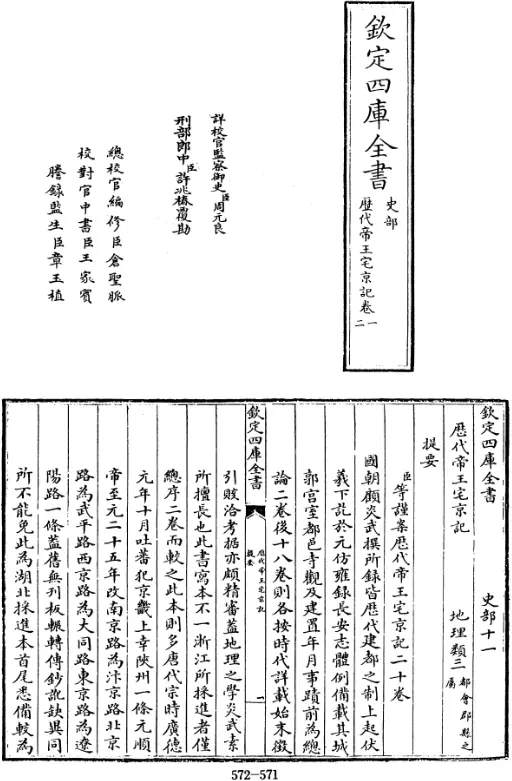 欽定四庫全書
史部
歷代帝王宅京記卷一
二
詳校官監察御史臣周元良
刑部郎中臣許兆椿覆勘
總校官編修臣倉聖脈
校對官中書臣王家賓
謄錄監生臣章玉植
欽定四庫全書 史部十一
歷代帝王宅京記 地理類三 都會郡縣之屬
提要
臣等謹案歷代帝王宅京記二十卷
國朝顧炎武撰所錄皆歷代建都之制上起伏
羲下訖於元仿雍錄長安志體例備載其城
郭宫室都邑寺觀及建置年月事蹟前為總
論二卷後十八卷則各按時代詳載始末徵
欽定四庫全書 歷代帝王宅京記 提要 一
引賅洽考據亦頗精審蓋地理之學炎武素
所擅長也此書寫本不一浙江所採進者僅
總序二卷而較之此本則多唐代宗時廣德
元年十月吐蕃犯京畿上幸陜州一條元順
帝至元二十五年改南京路為汴京路北京
路為武平路西京路為大同路東京路為遼
陽路一條蓋舊無刊板輾轉傳鈔訛缺異同
所不能免此為湖北採進本首尾悉備較為
572-571